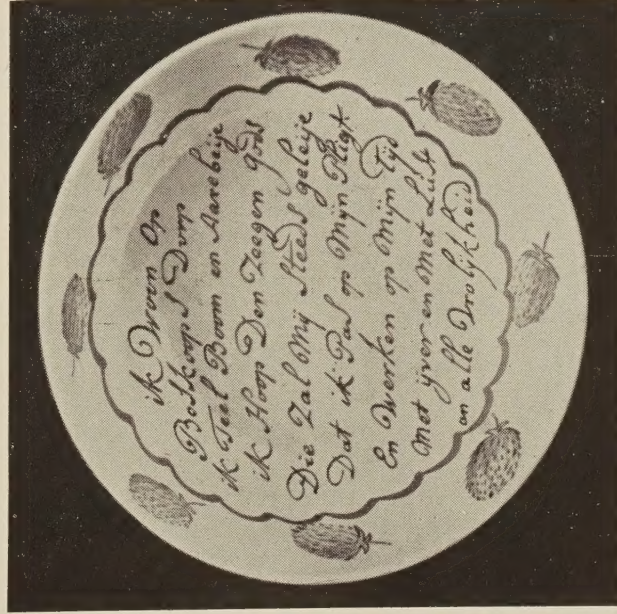 ik Woon Op
Boskoops Dorp
ik Teel Boom en Aarebeije
ik Hoop Den Zeegen Gods
Die Zal Mij Steeds geleije
Dat ik Pas op Mijn Pligt
En Werken op Mijn Tijd
Met ijver en Met Lust
en alle Vrolijkheid